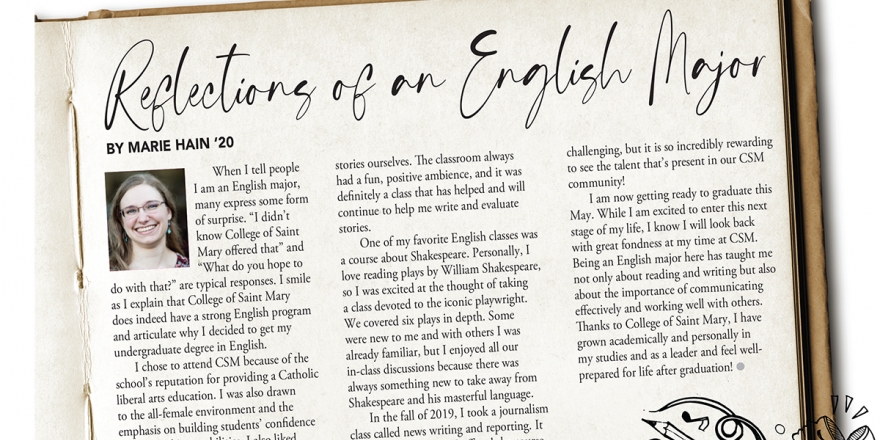 Reflections of an English Major
BY MARIE HAIN ‘20
When I tell people
I am an English major,
many express some form
of surprise. “I didn’t
know College of Saint
Mary offered that” and
“What do you hope to
do with that?” are typical responses. I smile
as I explain that College of Saint Mary
does indeed have a strong English program
and articulate why I decided to get my
undergraduate degree in English.
I chose to attend CSM because of the
school’s reputation for providing a Catholic
liberal arts education. I was also drawn
to the all-female environment and the
emphasis on building students’ confidence
I also liked
stories ourselves. The classroom always
had a fun, positive ambience, and it was
definitely a class that has helped and will
continue to help me write and evaluate
stories.
One of my favorite English classes was
a course about Shakespeare. Personally, I
love reading plays by William Shakespeare,
so I was excited at the thought of taking
a class devoted to the iconic playwright.
We covered six plays in depth. Some
were new to me and with others I was
already familiar, but I enjoyed all our
in-class discussions because there was
always something new to take away from
Shakespeare and his masterful language.
In the fall of 2019, I took a journalism
class called news writing and reporting. It
challenging, but it is so incredibly rewarding
to see the talent that’s present in our CSM
community!
I am now getting ready to graduate this
May. While I am excited to enter this next
stage of my life, I know I will look back
with great fondness at my time at CSM.
Being an English major here has taught me
not only about reading and writing but also
about the importance of communicating
effectively and working well with others.
Thanks to College of Saint Mary, I have
grown academically and personally in
my studies and as a leader and feel well-
prepared for life after graduation!